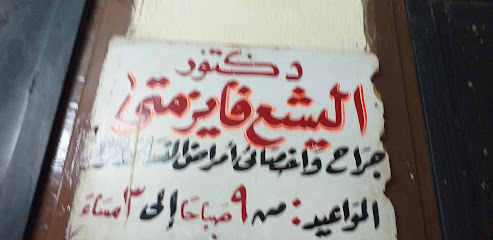 دكتور
اليشع فايز متى
جراح وأخصائى أمراض النسا
المواعيد: من ٩ صباحا إلى ٣ مساء